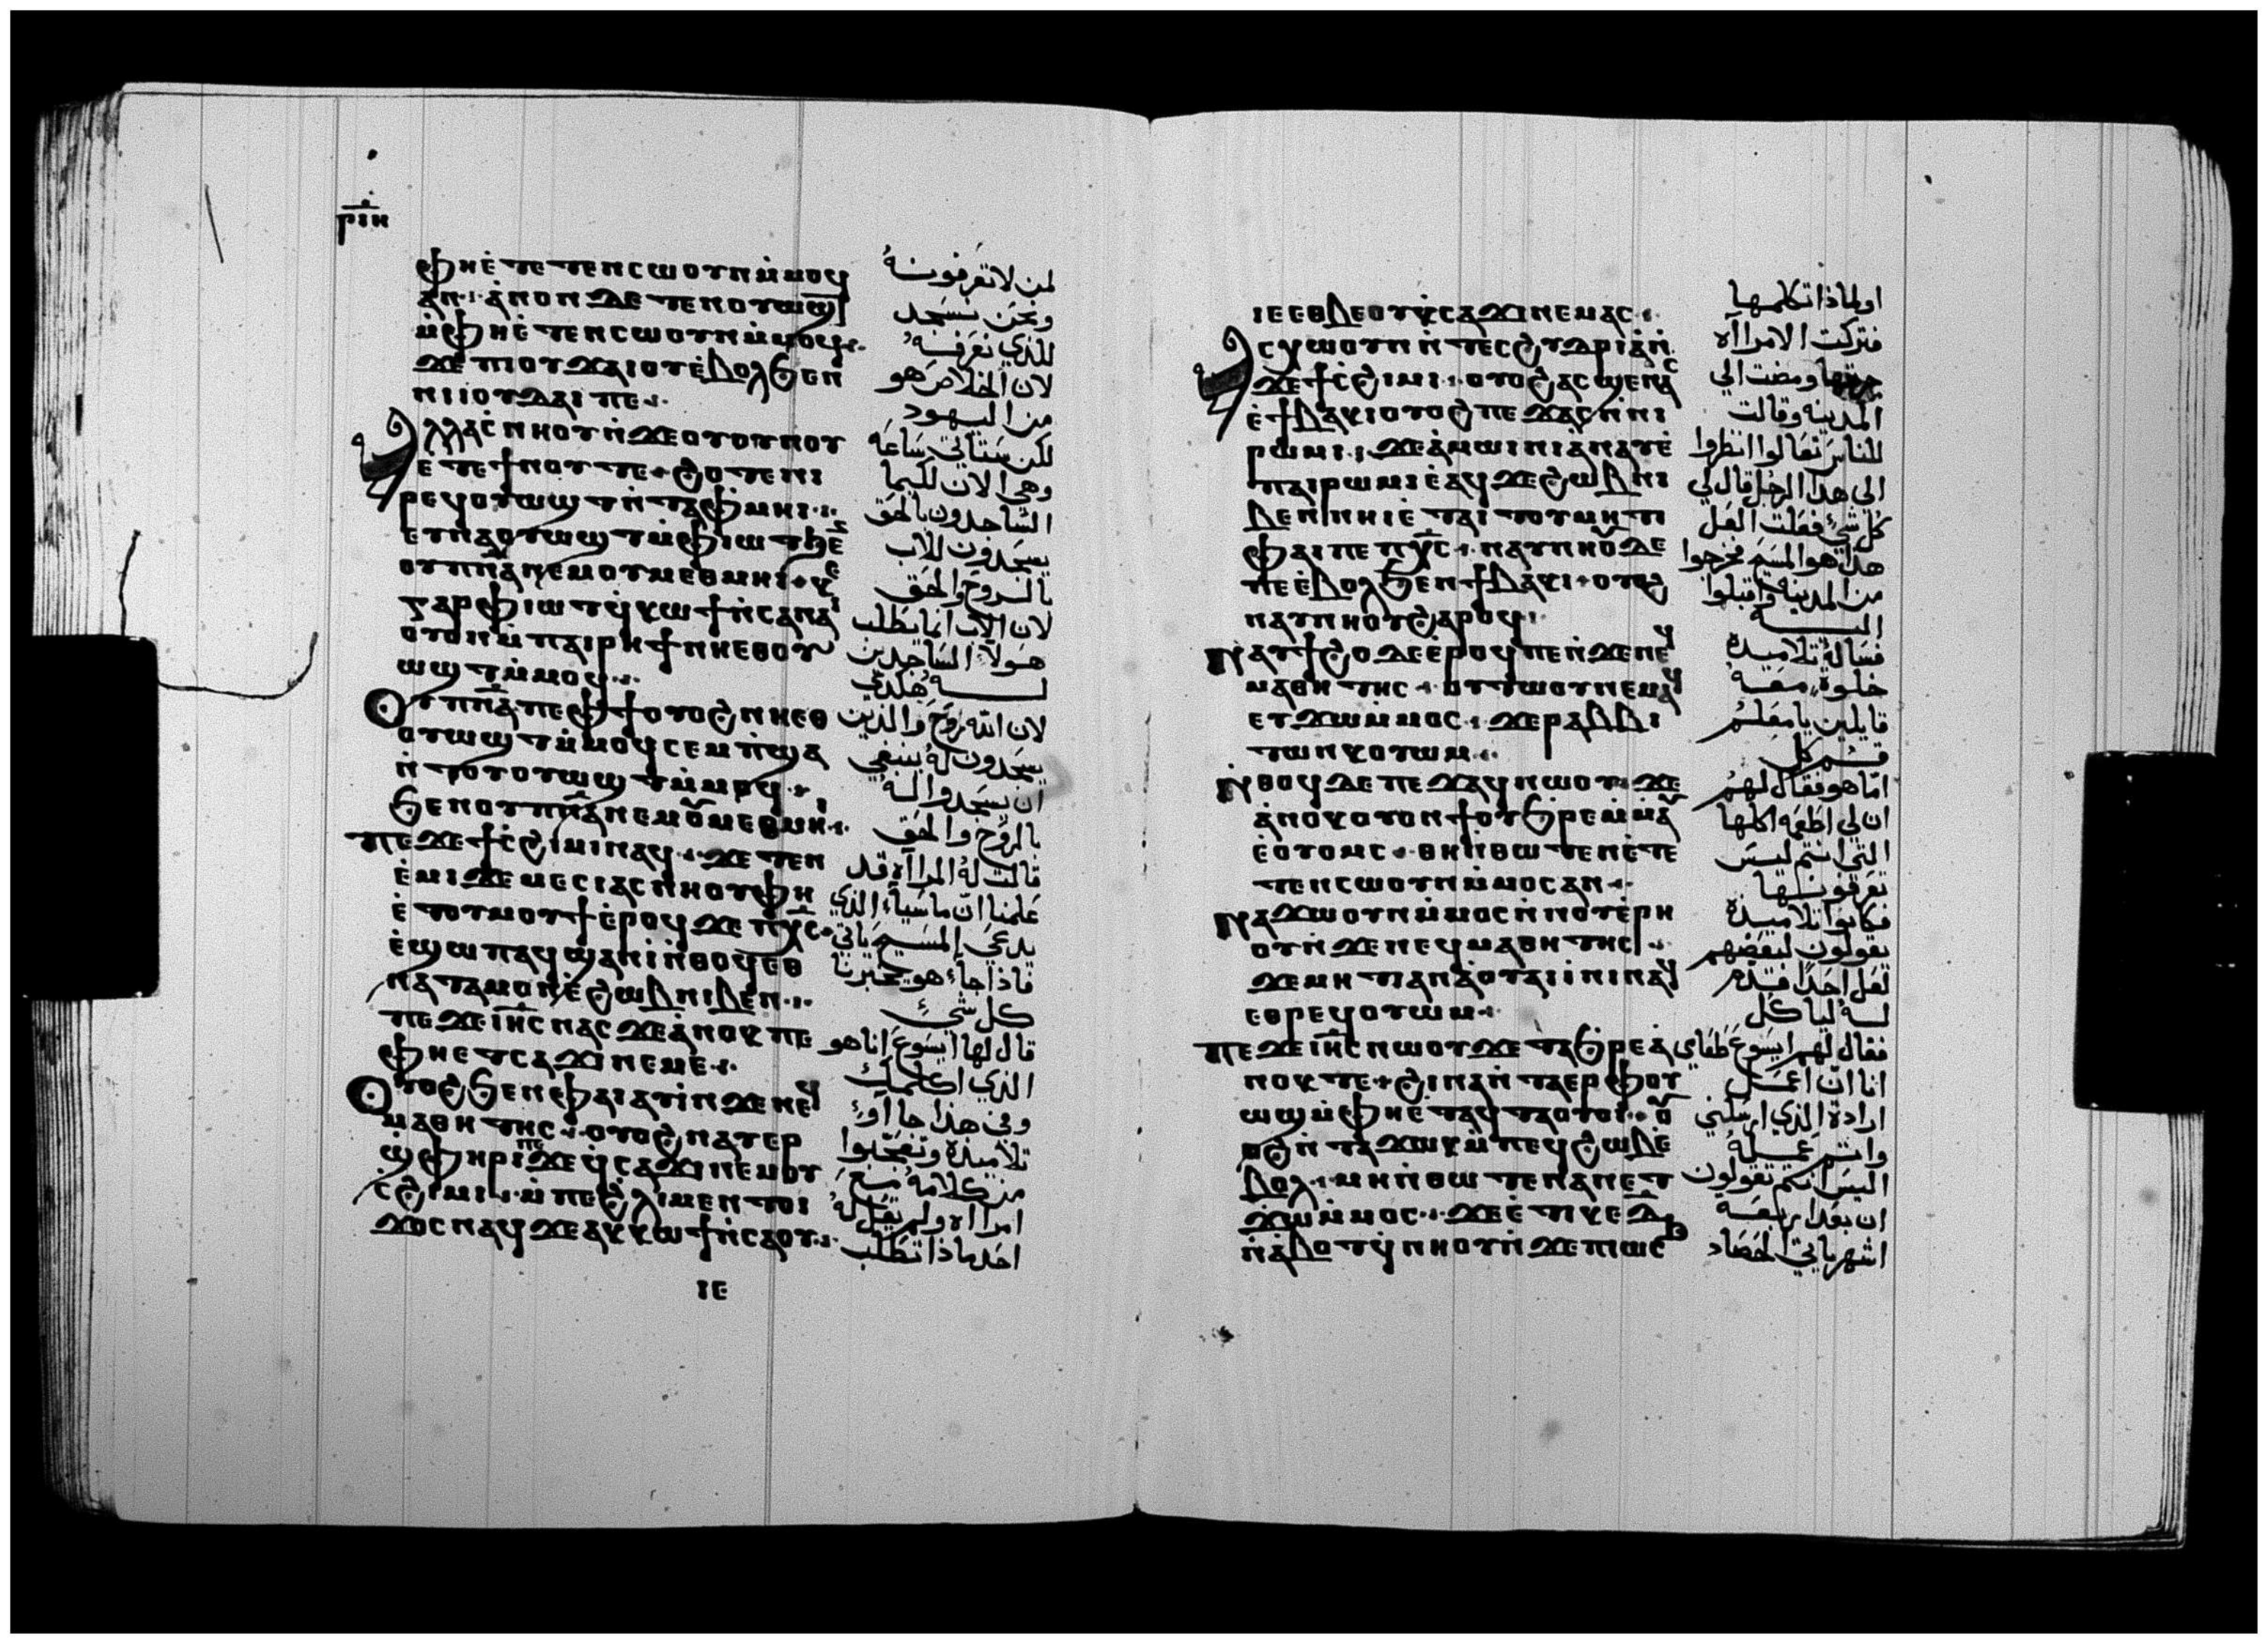 ⲣⲓⲏ
ⲫⲏⲉ̀ⲧⲉⲧⲉⲛⲥⲱⲟⲩⲛⲙ̀ⲙⲟϥ
ⲁⲛ ⲁ̀ⲛⲟⲛ ⲇⲉ ⲧⲉⲛⲟⲩⲱϣⲧ
ⲙ̀ⲫⲏⲉ̀ⲧⲉⲛⲥⲱⲟⲩⲛⲙ̀ⲙⲟϥ
ϫⲉ ⲡⲓⲟⲩϫⲁⲓⲟⲩⲉ̀ⲃⲟⲗϧⲉⲛ
ⲛⲓⲓⲟⲩⲇⲁⲓ ⲡⲉ
ⲁⲗⲗⲁⲥ̀ⲛⲏⲟⲩⲛ̀ϫⲉⲟⲩⲟⲩⲛⲟⲩ
ⲉ̀ⲧⲉϯⲛⲟⲩ ⲧⲉ ϩⲟⲧⲉⲛⲓ
ⲣⲉϥⲟⲩⲱϣⲧⲛ̀ⲧⲁⲫ̀ⲙⲏⲓ
ⲉⲩⲛⲁⲟⲩⲱϣⲧⲙ̀ⲫⲓⲱⲧϧⲉ
ⲟⲩⲡⲛ̅ⲁ̅ⲛⲉⲙⲟⲩⲙⲉⲑⲙⲏⲓ ⲕⲉ
ⲅⲁⲣⲫⲓⲱⲧϥ̀ⲕⲱϯⲛ̀ⲥⲁⲛⲁⲓ
ⲟⲩⲟⲛⲙ̀ⲡⲁⲓⲣⲏϯⲛⲏⲉⲑⲟⲩ
ⲱϣⲧⲙ̀ⲙⲟϥ
ⲟⲩⲡⲛ̅ⲁ̅ⲡⲉⲫϯⲟⲩⲟϩⲛⲏⲉⲑ
ⲟⲩⲱϣⲧⲙ̀ⲙⲟϥⲥⲉⲙⲡ̀ϣⲁ
ⲛ̀ⲧⲟⲩⲟⲩⲱϣⲧⲙ̀ⲙⲟϥ
ϧⲉⲛⲟⲩⲡⲛ̅ⲁ̅ⲛⲉⲙⲟⲩⲙⲉⲑⲙⲏⲓ
ⲡⲉϫⲉϯⲥ̀ϩⲓⲙⲓⲛⲁϥ ϫⲉ ⲧⲉⲛ
ⲉ̀ⲙⲓϫⲉⲙⲉⲥⲓⲁⲥⲛ̀ⲏⲟⲩⲫⲏ
ⲉ̀ⲧⲟⲩⲙⲟⲩϯⲉ̀ⲣⲟϥϫⲉ ⲡⲭ̅ⲥ̅
ⲉ̀ϣⲱⲡⲁϥϣⲁⲛⲓ̀ⲛ̀ⲑⲟϥⲉⲑ
ⲛⲁⲧⲁⲙⲟⲛⲉ̀ϩⲱⲃⲛⲓⲃⲉⲛ
ⲡⲉϫⲉⲓⲏ̅ⲥ̅ⲛⲁⲥϫⲉⲁ̀ⲛⲟⲕⲡⲉ
ⲫⲏⲉⲧⲥⲁϫⲓⲛⲉⲙⲉ
ⲟⲩⲟϩϧⲉⲛⲫⲁⲓⲁⲩⲓ̀ⲛ̀ϫⲉⲛⲉϥ
ⲙⲁⲑⲏⲧⲏⲥ ⲟⲩⲟϩⲛⲁⲩⲉⲣ
ϣ̀ⲫⲏⲣⲓⲡⲉϫⲉϥ̀ⲥⲁϫⲓⲛⲉⲙⲟⲩ
ⲥ̀ϩⲓⲙⲓ ⲙ̀ⲡⲉϩⲗⲓⲙⲉⲛⲧⲟⲓ
ϫⲟⲥⲛⲁϥϫⲉⲁⲕⲕⲱϯⲛ̀ⲥⲁⲟⲩ
لمن لا تعرفونهُ
ونحن نسجد
للذي نعرفهُ
لان الخلاص هو
من اليهود
لكن ستاتي ساعه
وهي الان لكيما
الساجدون بالحق
يسجدون للاب
بالروح والحق
لان الاب انما يطلب
هولاء الساجدين
لـه هكذي
لان الله روح والذين
يسجدون له ينبغي
ان يسجدوا له
بالروح والحق
قالت له المراه قد
علمنا ان ماسيا الذي
يدعي المسيح ياتي
فاذا جا هو يخبرنا
كل شيء
قال لها ايسوع انا هو
الذي اكلمك
وفي هذا جا اوا
تلاميذه وتعجبوا
من كلامه مع
امراه ولم يقل له
احد ماذا تطلب
ⲓⲉ
ⲓⲉⲉⲑⲃⲉⲟⲩⲕ̀ⲥⲁϫⲓⲛⲉⲙⲁⲥ
ⲁⲥⲭⲱⲟⲩⲛⲛ̀ⲧⲉⲥϩⲩⲇⲣⲓⲁⲛ̀
ϫⲉϯⲥ̀ϩⲓⲙⲓ ⲟⲩⲟϩⲁⲥϣⲉⲛⲁⲥ
ⲉ̀ϯⲃⲁⲕⲓⲟⲩⲟϩⲡⲉϫⲁⲥⲛ̀ⲛⲓ
ⲣⲱⲙⲓ ϫⲉⲁ̀ⲙⲱⲓⲛⲓⲁ̀ⲛⲁⲩⲉ̀
ⲡⲁⲓⲣⲱⲙⲓⲉ̀ⲁϥϫⲉϩⲱⲃⲛⲓ
ⲃⲉⲛⲛⲏⲓⲉ̀ⲧⲁⲓⲧⲟⲩⲙⲏⲧⲓ
ⲫⲁⲓⲡⲉ ⲡⲭ̅ⲥ̅ ⲛⲁⲩⲛⲏⲟⲩⲇⲉ
ⲡⲉⲉ̀ⲃⲟⲗϧⲉⲛϯⲃⲁⲕⲓ ⲟⲩⲟϩ
ⲛⲁⲩⲛⲏⲟⲩϩⲁⲣⲟϥ
ⲛⲁⲩϯϩⲟⲇⲉⲉ̀ⲣⲟϥⲡⲉⲛ̀ϫⲉⲛⲉϥ
ⲙⲁⲑⲏⲧⲏⲥ ⲟⲩⲧⲱⲟⲩⲛⲉⲙⲁϥ
ⲉⲩϫⲱⲙ̀ⲙⲟⲥ ϫⲉⲣⲁⲃⲃⲓ
ⲧⲱⲛⲕⲟⲩⲱⲙ
ⲛ̀ⲑⲟϥⲇⲉⲡⲉϫⲁϥⲛⲱⲟⲩ ϫⲉ
ⲁ̀ⲛⲟⲕⲟⲩⲟⲛϯⲟⲩϧⲣⲉⲙ̀ⲙⲁⲩ
ⲉ̀ⲟⲩⲟⲙⲥ ⲑⲏⲛ̀ⲑⲱⲧⲉⲛⲉ̀ⲧⲉ
ⲧⲉⲛⲥⲱⲟⲩⲛⲙ̀ⲙⲟⲥⲁⲛ
ⲛⲁϫⲱⲟⲩⲛⲙ̀ⲙⲟⲥⲛ̀ⲛⲟⲩⲉ̀ⲣⲏ
ⲟⲩⲛ̀ϫⲉⲛⲉϥⲙⲁⲑⲏⲧⲏⲥ
ϫⲉⲙⲏⲧⲁⲡⲁ̀ⲟⲩⲁⲓⲓ̀ⲛⲓⲛⲁϥ
ⲉⲑⲣⲉϥⲟⲩⲱⲙ
ⲡⲉϫⲉⲓⲏ̅ⲥ̅ⲛⲱⲟⲩϫⲉⲧⲁϧ̀ⲣⲉⲁ̀
ⲛⲟⲕⲧⲉ ϩⲓⲛⲁⲛ̀ⲧⲁⲉⲣⲫⲟⲩ
ⲱϣⲙ̀ⲫⲏⲉ̀ⲧⲁϥⲧⲁⲟⲩⲟⲓ ⲟⲩ
ⲟϩⲛ̀ⲧⲁϫⲱⲕⲙ̀ⲡⲉϥϩⲱⲃⲉ̀
ⲃⲟⲗ ⲙⲏⲛ̀ⲑⲱⲧⲉⲛⲁⲛⲉⲧ
ϫⲱⲙ̀ⲙⲟⲥ ϫⲉⲉ̀ⲧⲓⲕⲉⲇ̅
ⲛ̀ⲁ̀ⲃⲟⲧϥ̀ⲛⲏⲟⲩⲛ̀ϫⲉⲡⲓⲱⲥϧ
او لماذا تكلمها
فتركت الامراه
جرتها ومضت الي
المدينه وقالت
للناس تعالوا انظروا
الي هذا الرجل قال لي
كل شي فعلت العل
هذا هو المسيح فخرجوا
من المدينه واقبلوا
اليـه
فساله تلاميذه
خلوه معـه
قايلين يا معلم
قـم كل
اما هو فقال لهم
ان لي اطعمه اكلها
التي انتم ليس
تعرفونها
فكانوا تلاميذه
يقولون لبعضهم
لعل احدا قدم
لـه لياكل
فقال لهم ايسوع طعامي
انا ان اعمل
اراده الذي ارسلني
واتـم عمله
اليس انكم تقولون
ان بعد اربعـه
اشهر ياتي الحصاد